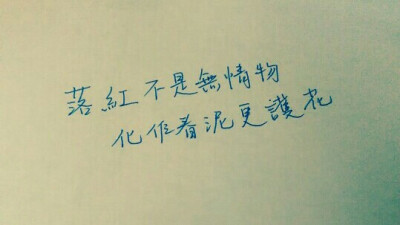 落紅不是無情物
化作春泥更護花